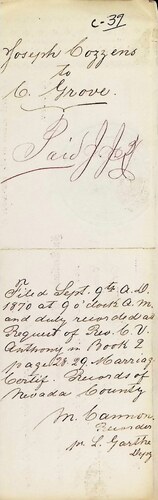 C-39
Joseph Cozzens
to
C. Grove.
Paid
Filed Sept. 9th A.D.
1870 at 9 o'clock A.M.
and duly recorded at
Request of Rev. C. V.
Anthony in Book 2
page 28 29. Marriag
Certif. Records of
Nevada County
M. Cannon
Recorder
pr L. Garthe
Dpy